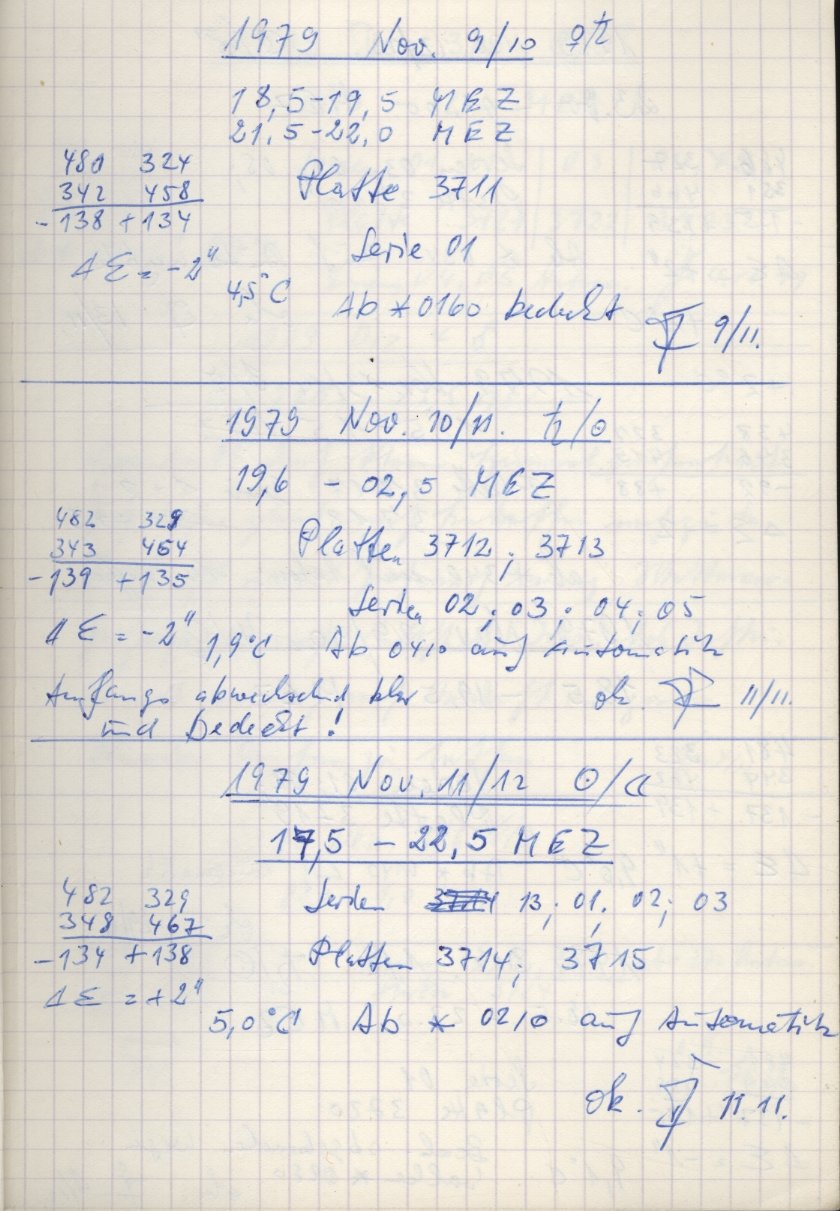 1979 Nov. 9/10 ♀♄
18,5-19,5 MEZ
21,5-22,0 MEZ
480 324
342 458
-138 +134
Platte 3711
Serie 01
Δε = -2"
4,5°C
Ab * 0160 bedeckt
9/11.
1979 Nov. 10/11. ♄/☉
19,6 - 02,5 MEZ
482 329
343 464
-139 +135
Platten 3712; 3713
Serien 02; 03; 04; 05
Δε = -2" 1,9°C Ab 0410 auf Automatik
Anfangs abwechselnd klar
und bedeckt!
ok. 11/11.
1979 Nov. 11/12 ☉/☾
17,5 - 22,5 MEZ
482 329
348 467
-134 +138
Serien 13; 01; 02; 03
Platten 3714; 3715
Δε = +2"
5,0°C Ab * 0210 auf Automatik
ok. 11.11.